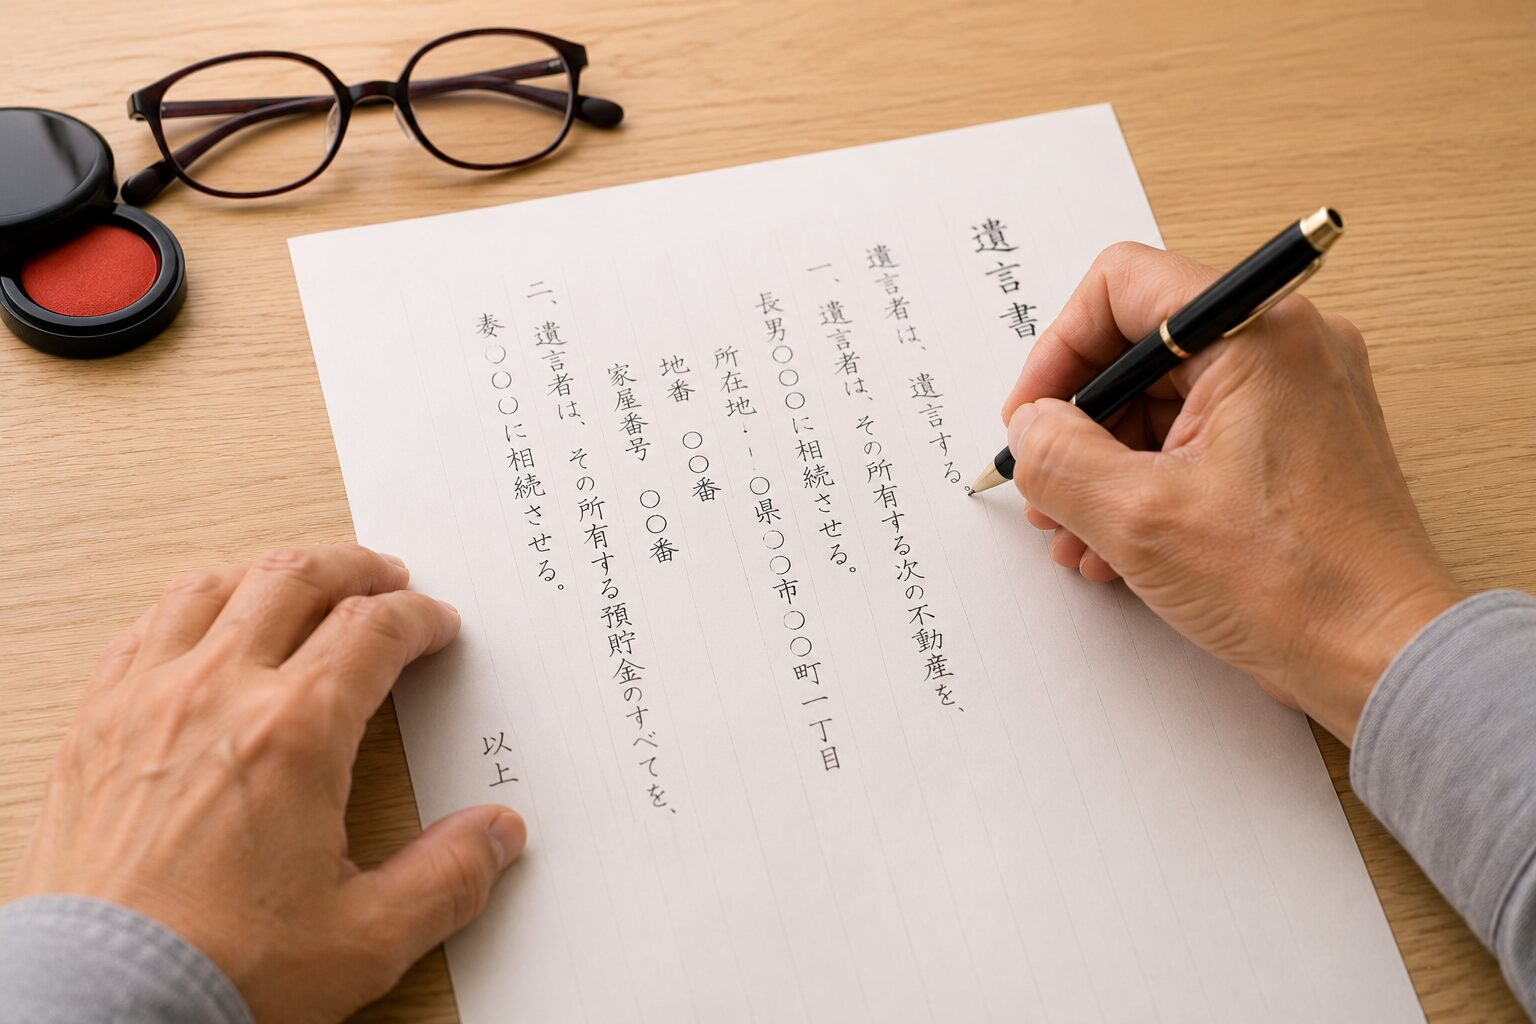 遺言書
遺言者は、遺言する。
一、遺言者は、その所有する次の不動産を、
長男〇〇〇に相続させる。
所在地・・〇県〇〇市〇〇町一丁目
地番 〇〇番
家屋番号 〇〇番
二、遺言者は、その所有する預貯金のすべてを、
〇〇〇に相続させる。
以上